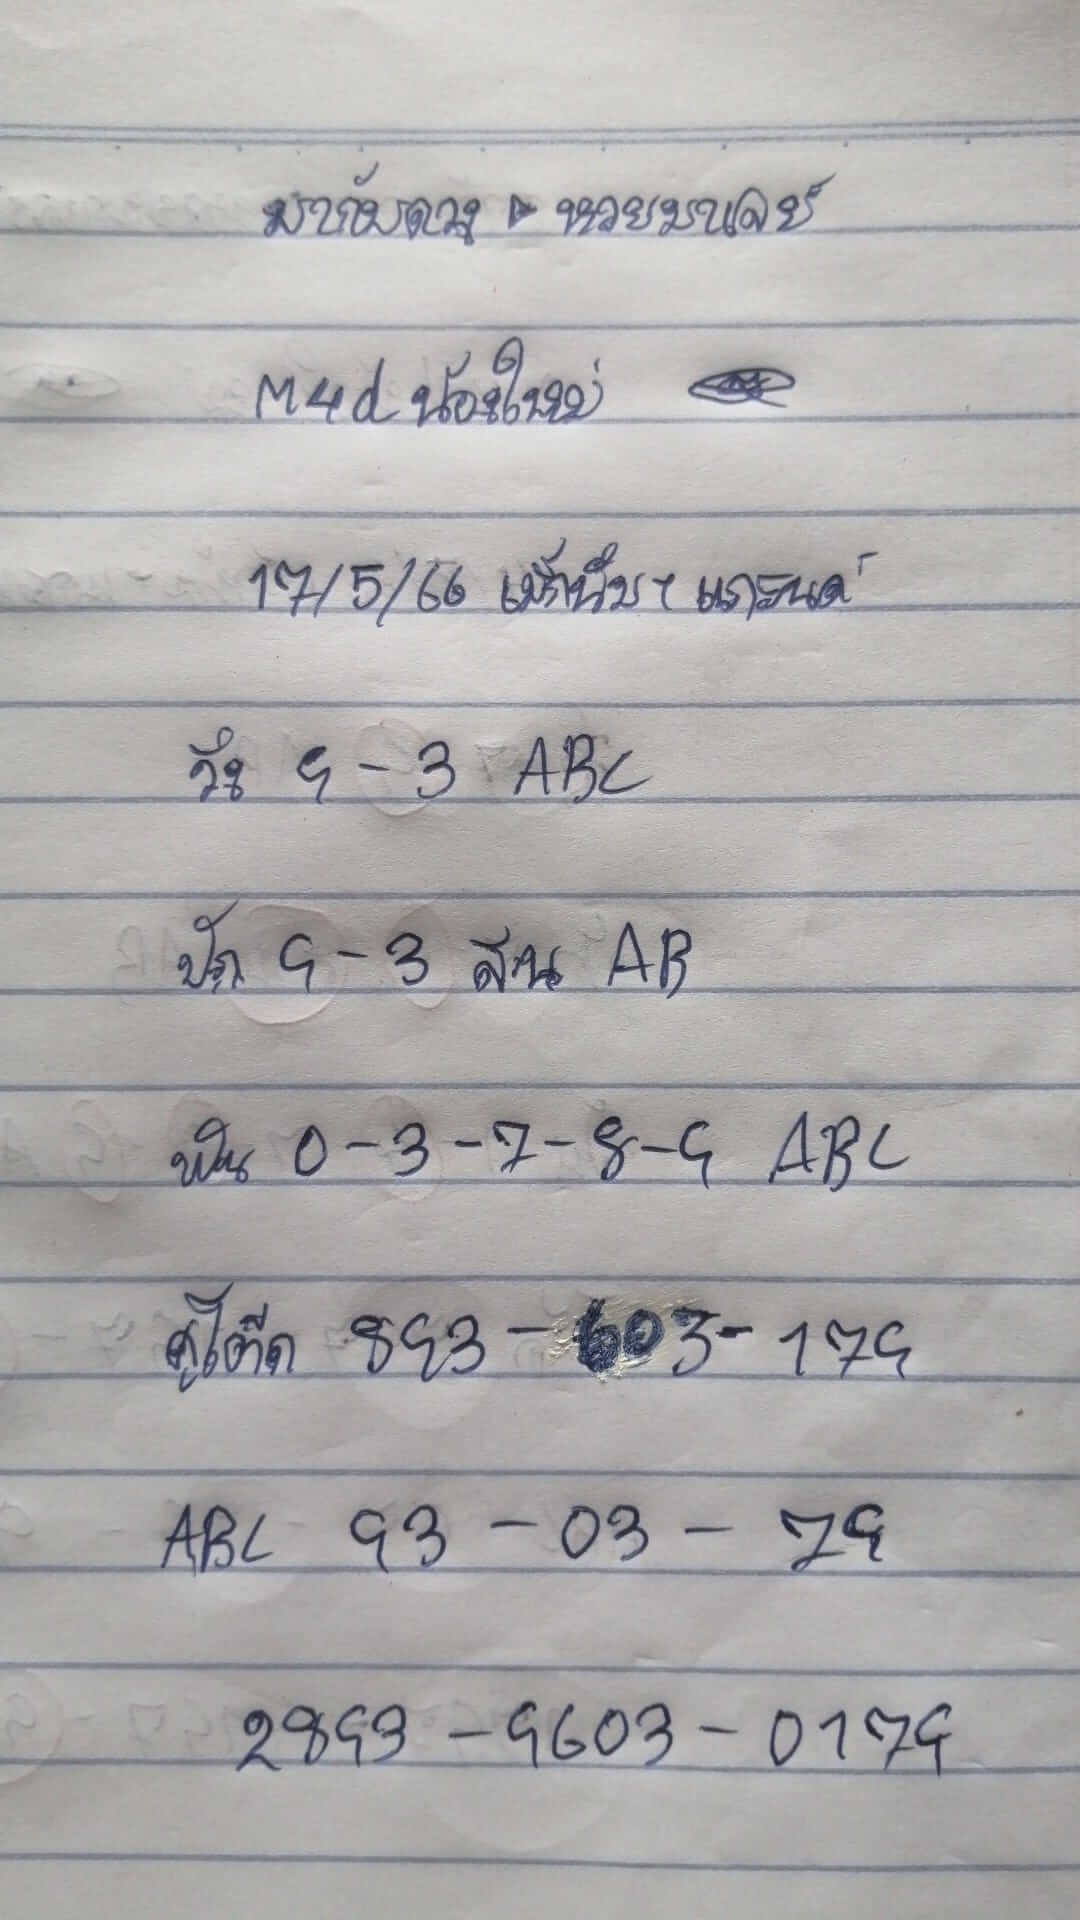 มากับดวง ▶ หวยมาเลย์
M4d น้องใหม่
17/5/66 แกรนด์
วิ่ง 9 - 3 ABC
ปัก 9 - 3 สน AB
ฟัน 0 - 3 - 7 - 8 - 9 ABC
893 - 603 - 179
ABC 93 - 03 - 79
2893 - 9603 - 0179